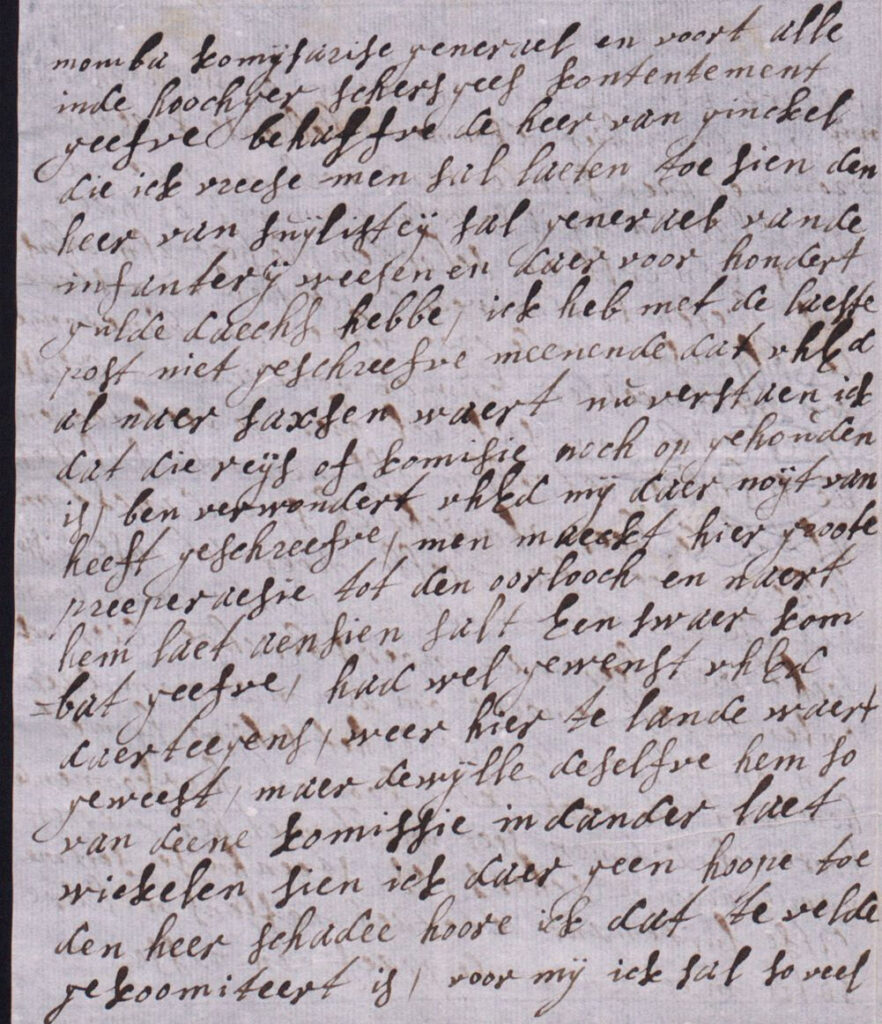 momba komijsarise generael en voort alle
inde hoochger schersgees kontentement
geefve behalfve de heer van ginckel
die ick vreese men sal laeten toe sien den
heer van suijlisteij sal generael vande
infanterij weesen en daer voor hondert
gulde daechs hebbe / ick heb met de laeste
post niet geschreefve meenende dat uhEd
al naer saxsen waert nu verstaen ick
dat die reijs of komisie noch op gehouden
is / ben verwondert uhEd mij daer noijt van
heeft geschreefve / men maeckt hier groote
preeperaesie tot den oorlooch en naert
hem laet aensien salt Een swaer kom
=bat geefve / had wel gewenst uhEd
daerteegens / weer hier te lande waert
geweest / maer dewijlle deselfve hem so
van deene komissie in dander laet
wickelen sien ick daer geen hoope toe
den heer schadee hoore ick dat te velde
gekoomiteert is / voor mij ick sal so veel